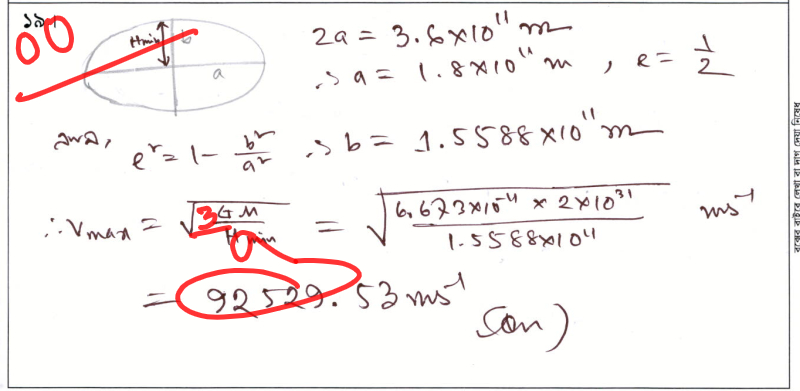 ১৯।
00
Hmin b a
2a = 3.6×10¹¹ m
∴ a = 1.8×10¹¹ m , e = 1/2
e² = 1 - b²/a² ∴ b = 1.5588×10¹¹ m
∴ Vmax = √(3GM/Hmin) = √(6.673×10⁻¹¹ × 2×10³¹/1.5588×10¹¹) ms⁻¹
0
= 92529.53 ms⁻¹
(an)
বক্সের বাইরে লেখা বা দাগ দেয়া নিষেধ